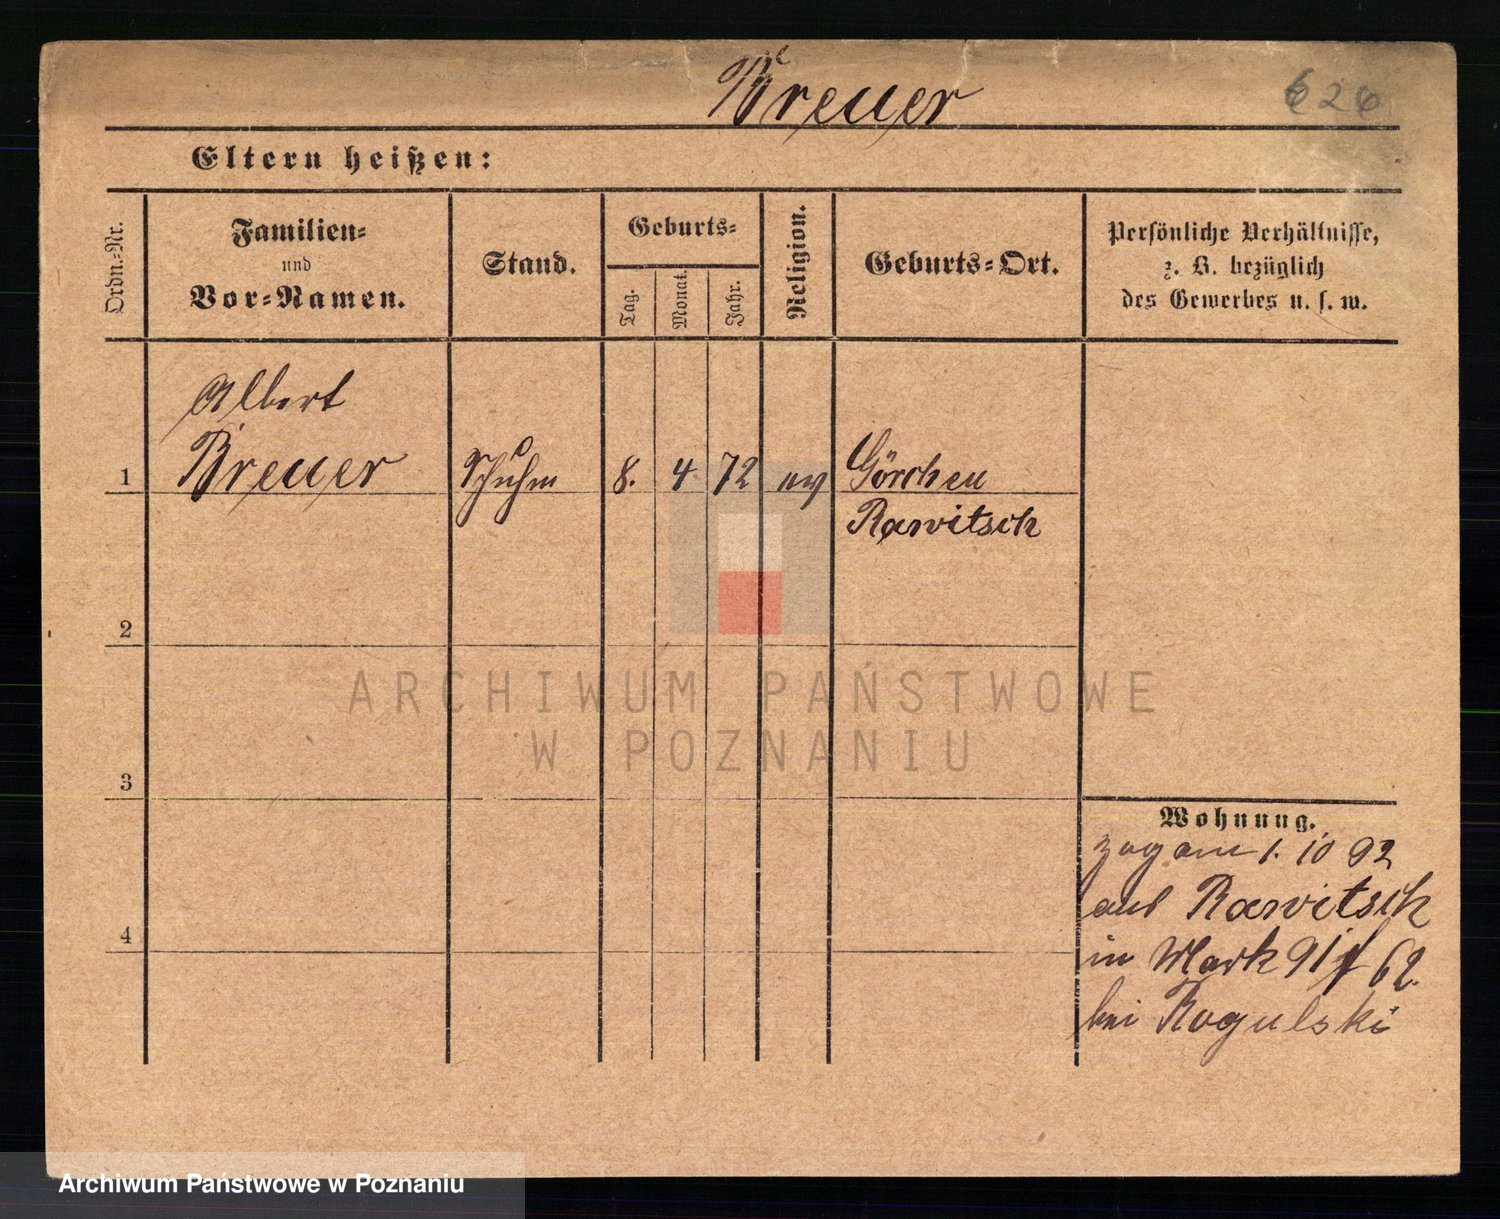 Breuer
626
Eltern heißen:
Ordn.-Nr.
Familien-
und
Vor-Namen.
Stand.
Geburts-
Tag.
Monat.
Jahr.
Religion.
Geburts-Ort.
Persönliche Verhältnisse,
z. B. bezüglich
des Gewerbes u. s. w.
Albert
1 Breuer Schuhm 8. 4 72 ev Görchen
Rawitsch
2
3
4
Wohnung.
zog am 1. 10 92
aus Rawitsch
in Mark 91 62.
bei Rogulski
ARCHIWUM PAŃSTWOWE
W POZNANIU
Archiwum Państwowe w Poznaniu